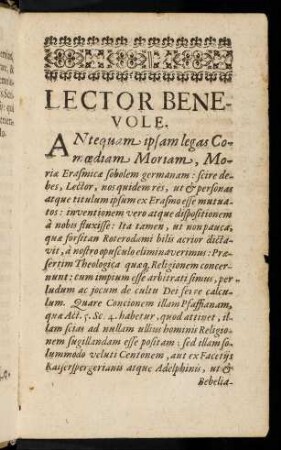 LECTOR BENE-
VOLE.
ANtequam ipsam legas Co-
mœdiam Moriam, Mo-
ria Erasmicæ sobolem germanam: scire de-
bes, Lector, nos quidem res, ut & personas
atque titulum ipsum ex Erasmo esse mutua-
tos: inventionem vero atque dispositionem
à nobis fluxisse: Ita tamen, ut non pauca,
quæ forsitan Roterodami bilis acrior dicta-
vit, à nostro opusculo eliminaverimus: Præ-
sertim Theologica quæq; Religionem concer-
nunt: cum impium esse arbitrati simus, per
ludum ac jocum de cultu Dei ferre calcu-
lum. Quare Concionem illam Pfaffianam,
quæ Act. 5. Sc. 4. habetur, quod attinet, il-
lam scias ad nullam ullius hominis Religio-
nem sugillandam esse positam: sed illam so-
lummodo veluti Centonem, aut ex Facetijs
Kaijerspergerianis atque Adelphinis, ut &
Bebelia-